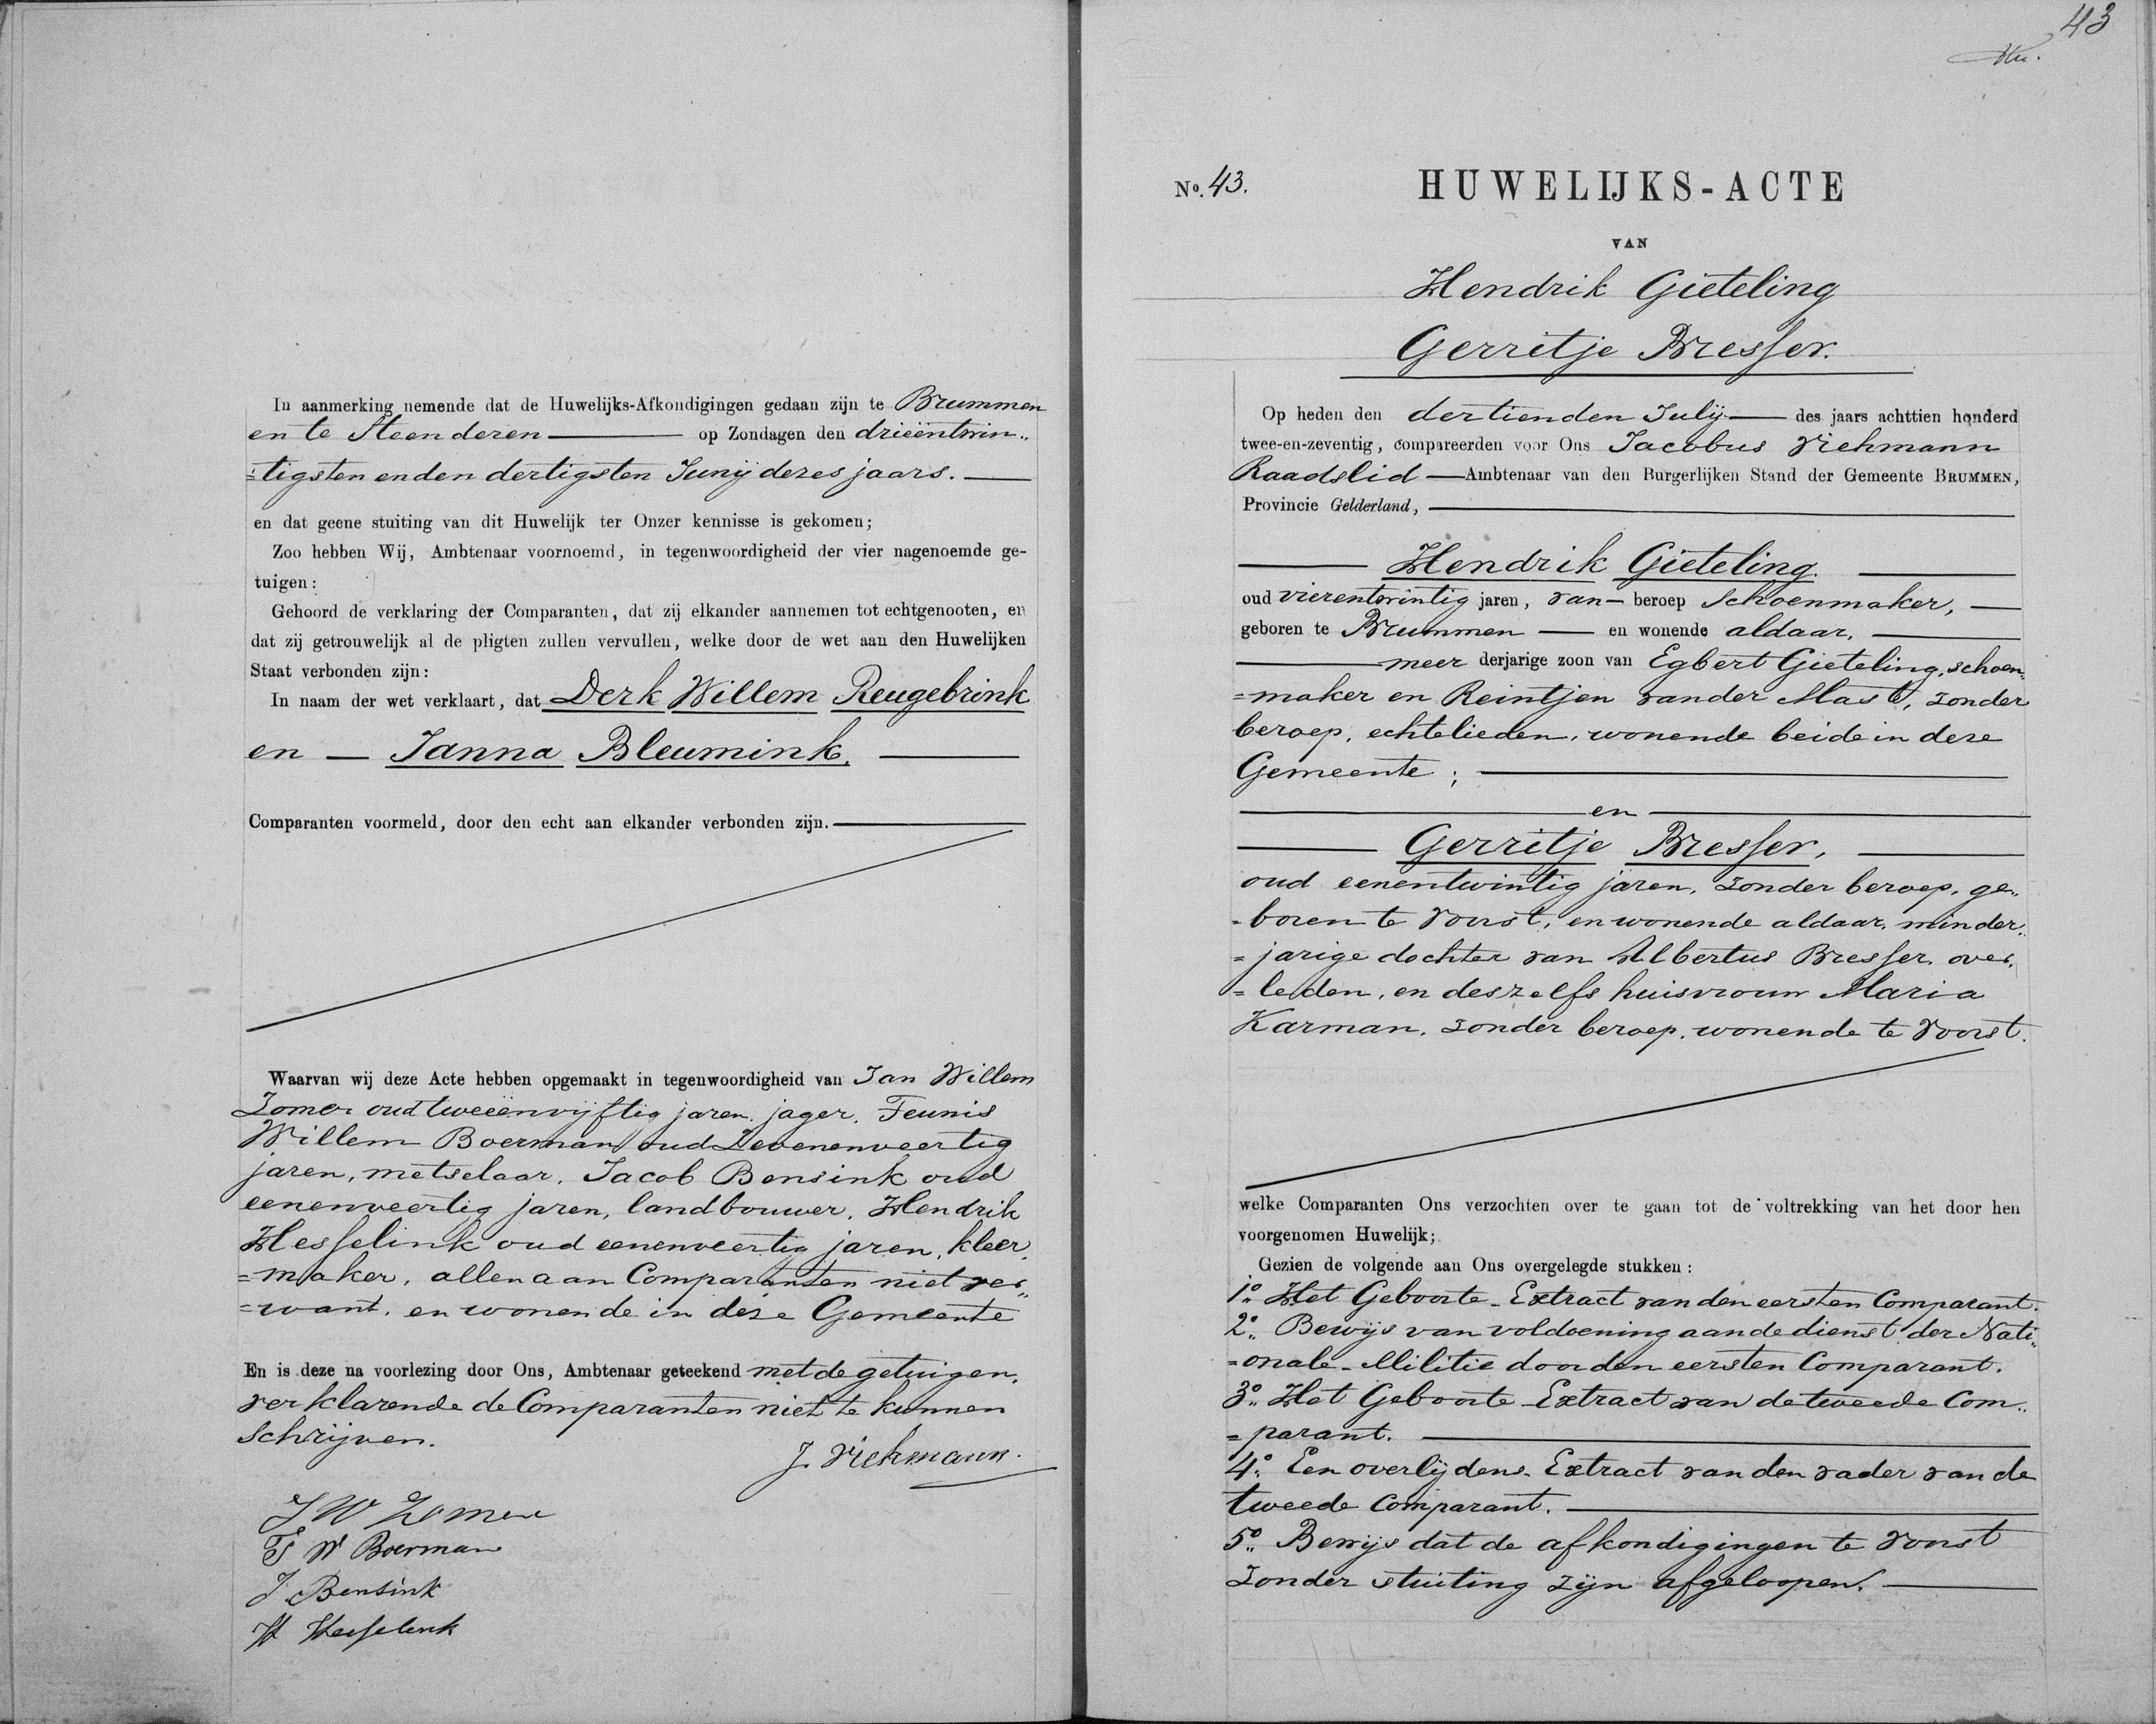 In aanmerking nemende dat de Huwelijks-Afkondigingen gedaan zijn te Brummen
en te Steenderen op Zondagen den drieëntwin„
=tigsten en den dertigsten Junij dezes jaars.
en dat geene stuiting van dit Huwelijk ter Onzer kennisse is gekomen;
Zoo hebben Wij, Ambtenaar voornoemd, in tegenwoordigheid der vier nagenoemde ge-
tuigen:
Gehoord de verklaring der Comparanten, dat zij elkander aannemen tot echtgenooten, en
dat zij getrouwelijk al de pligten zullen vervullen, welke door de wet aan den Huwelijken
Staat verbonden zijn:
In naam der wet verklaart, dat Derk Willem Reugebrink
en — Janna Bleumink.
Comparanten voormeld, door den echt aan elkander verbonden zijn.
Waarvan wij deze Acte hebben opgemaakt in tegenwoordigheid van Jan Willem
Zomer oud tweeënvijftig jaren, jager, Teunis
Willem Boerman, oud Zevenenveertig
jaren, metselaar, Jacob Bensink oud
eenenveertig jaren, landbouwer, Hendrik
Hesselink oud eenenveertig jaren, kleer„
=maker, allen aan Comparanten niet ver„
=want, en wonende in deze Gemeente
En is deze na voorlezing door Ons, Ambtenaar geteekend met de getuigen,
verklarende de Comparanten niet te kunnen
schrijven.
J. Viehmann.
J W Zomer
T W Boerman
J Bensink
H Hesselink
43
No. 43.
HUWELIJKS-ACTE
VAN
Hendrik Gieteling
Gerritje Bresser.
Op heden den dertienden July des jaars achttien honderd
twee-en-zeventig, compareerden voor Ons Jacobus Viehmann
Raadslid — Ambtenaar van den Burgerlijken Stand der Gemeente BRUMMEN,
Provincie Gelderland,
Hendrik Gieteling.
oud vierentwintig jaren, van — beroep Schoenmaker,
geboren te Brummen — en wonende aldaar,
meer derjarige zoon van Egbert Gieteling, schoen„
=maker en Reintjen van der Maste, zonder
beroep, echtelieden, wonende beide in deze
Gemeente;
en
Gerritje Bresser,
oud eenentwintig jaren, zonder beroep, ge„
=boren te Voorst, en wonende aldaar, minder„
=jarige dochter van Albertus Bresser, over„
=leden, en deszelfs huisvrouw Maria
Karman, zonder beroep, wonende te Voorst.
welke Comparanten Ons verzochten over te gaan tot de voltrekking van het door hen
voorgenomen Huwelijk;
Gezien de volgende aan Ons overgelegde stukken:
1o. Het Geboorte-Extract van den eersten Comparant.
2o. Bewijs van voldoening aan de dienst der Nati„
=onale-Militie door den eersten Comparant.
3o. Het Geboorte-Extract van de tweede Com„
=parant.
4o. Een overlijdens-Extract van den vader van de
tweede Comparant.
5o. Bewijs dat de afkondigingen te Voorst
zonder stuiting zijn afgeloopen.